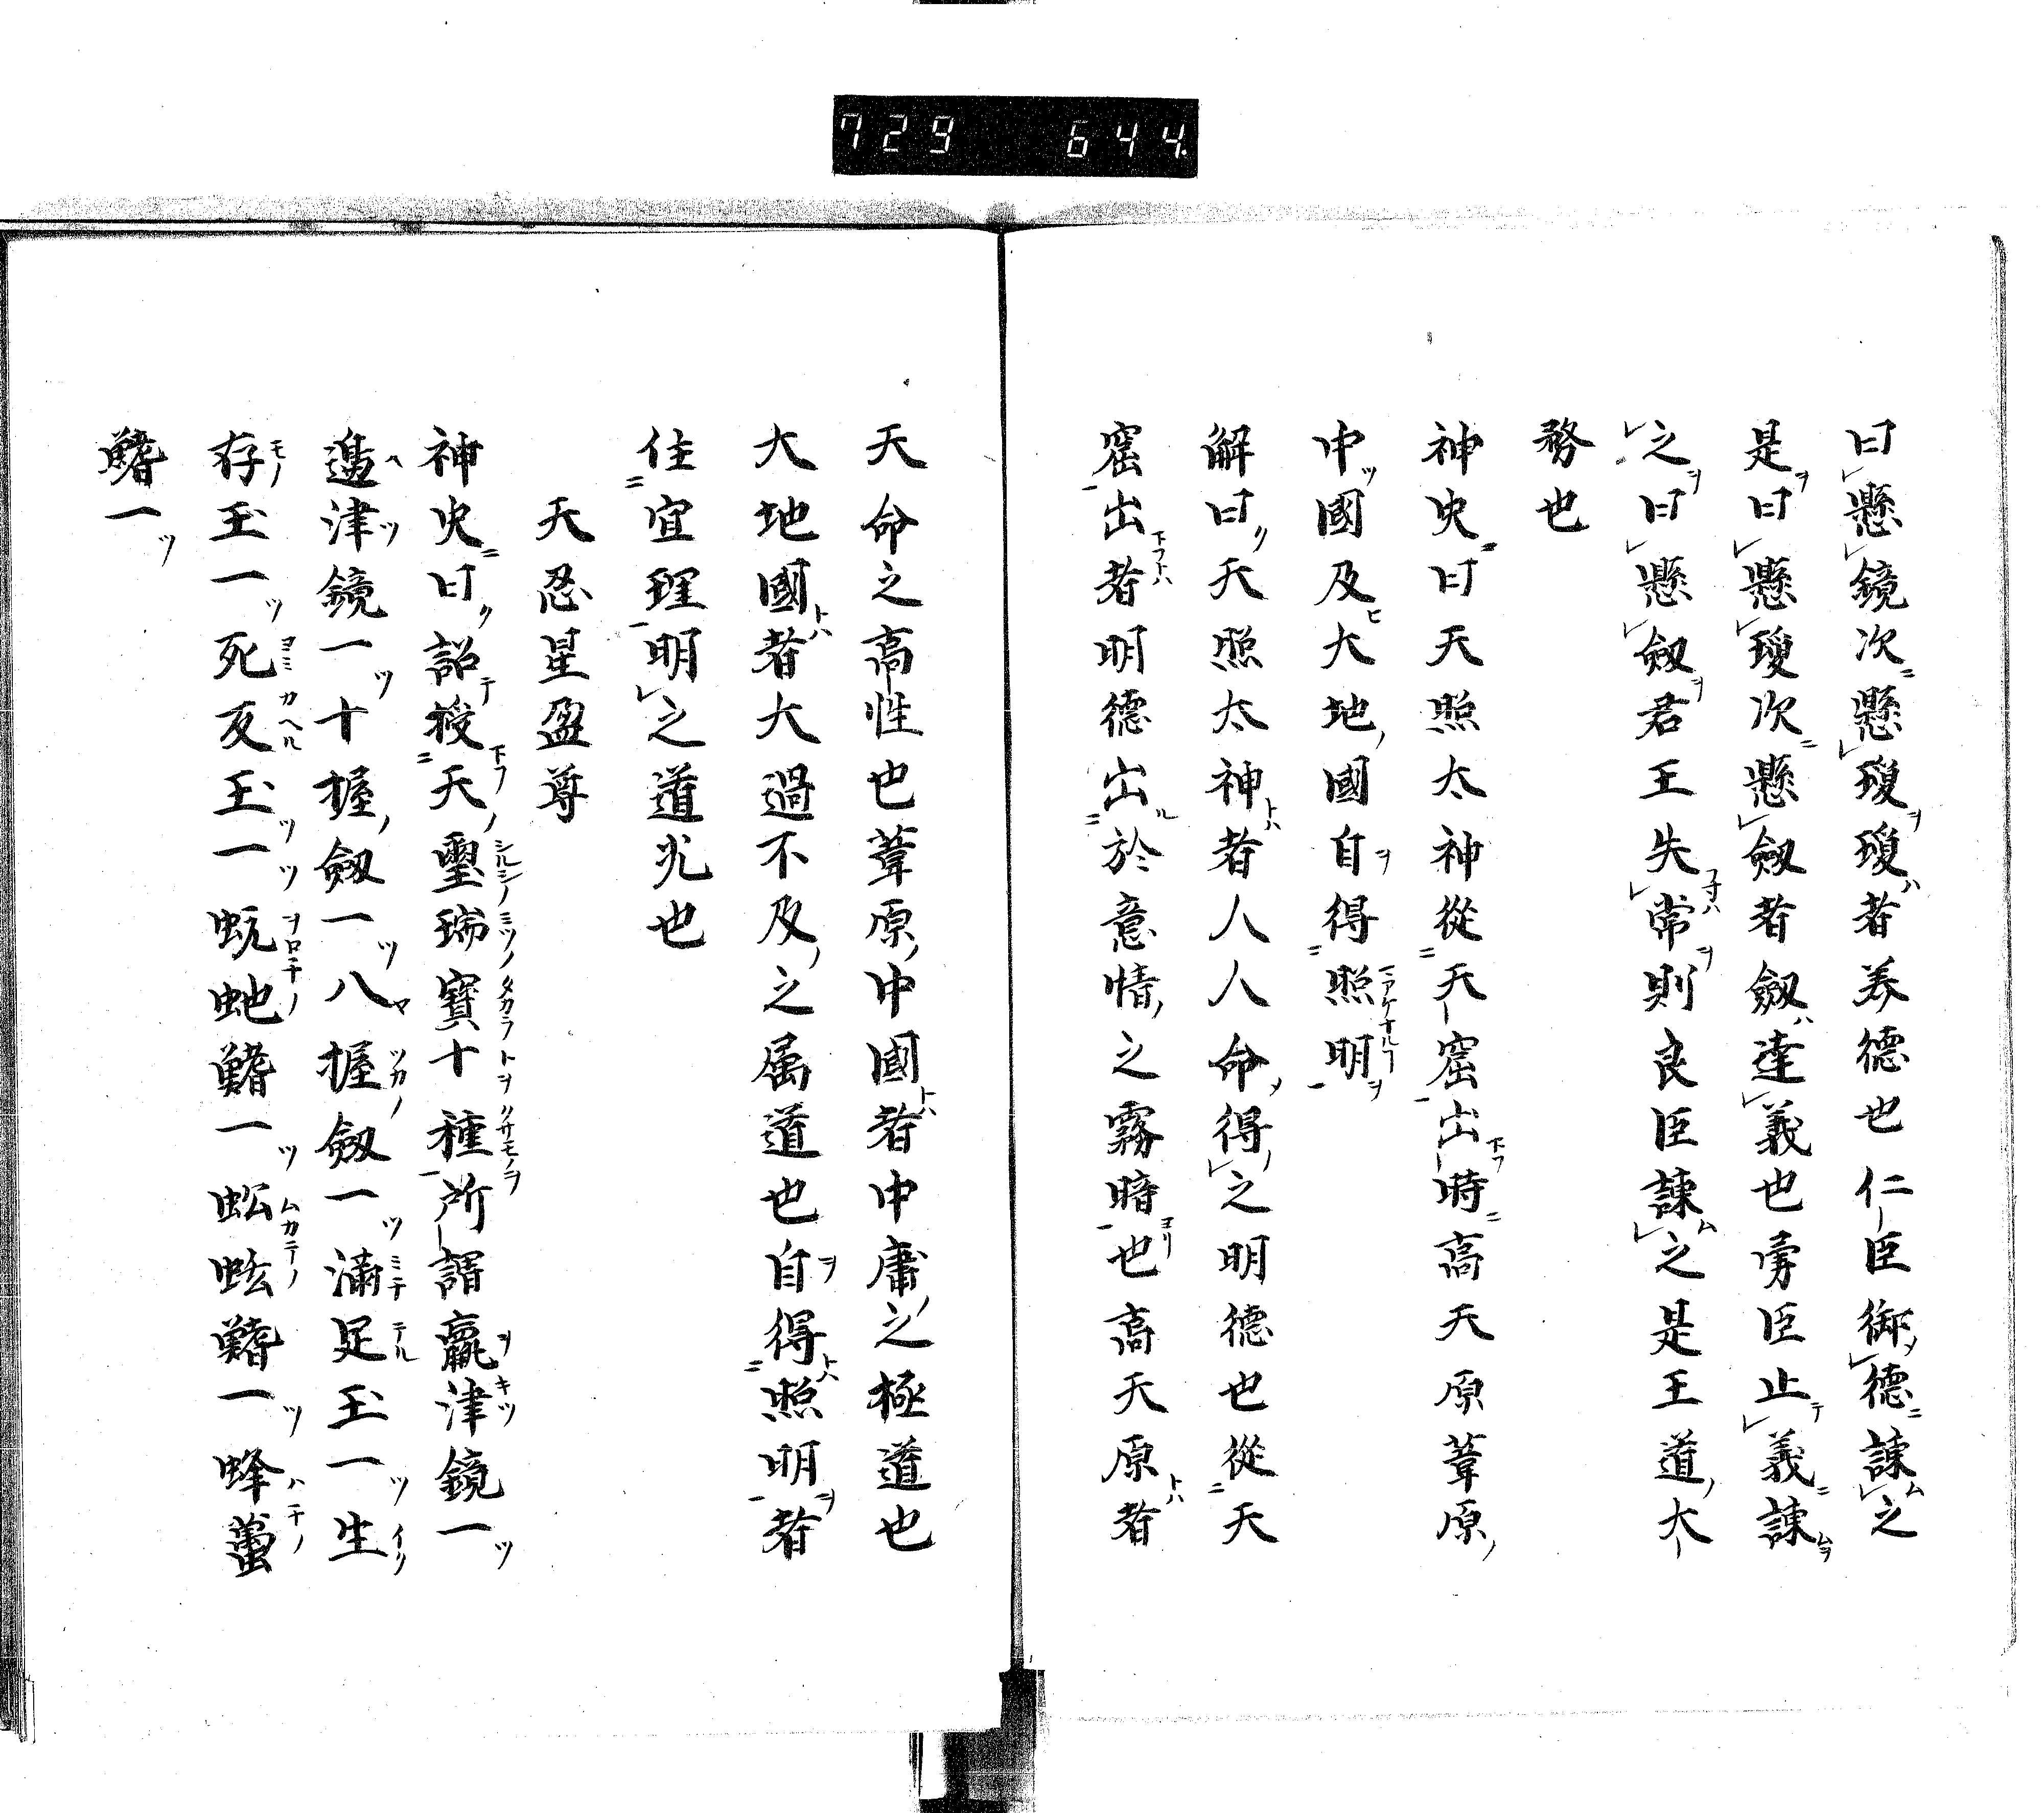 729 644.
曰懸鏡次懸瓊瓊者养德也仁臣御德諫之
是曰懸瓊次懸劔者劔達義也勇臣止義諫
之曰懸劔君王失常則良臣諫之是王道大
務也
神史曰天照太神從天窟出時高天原葦原
中國及大地國自得照明
解曰天照太神者人人命得之明德也從天
窟出者明德出於意情之霧暗也高天原者
天命之高性也葦原中國者中庸之極道也
大地國者大過不及之属道也自得照明者
住宜理明之道光也
天忍星盈尊
神史曰詔授天璽瑞寶十種所謂贏津鏡一
邊津鏡一十握劔一八握劔一滿足玉一生
存玉一死反玉一蚖虵鰭一蚣蚿鰭一蜂蠆
鰭一